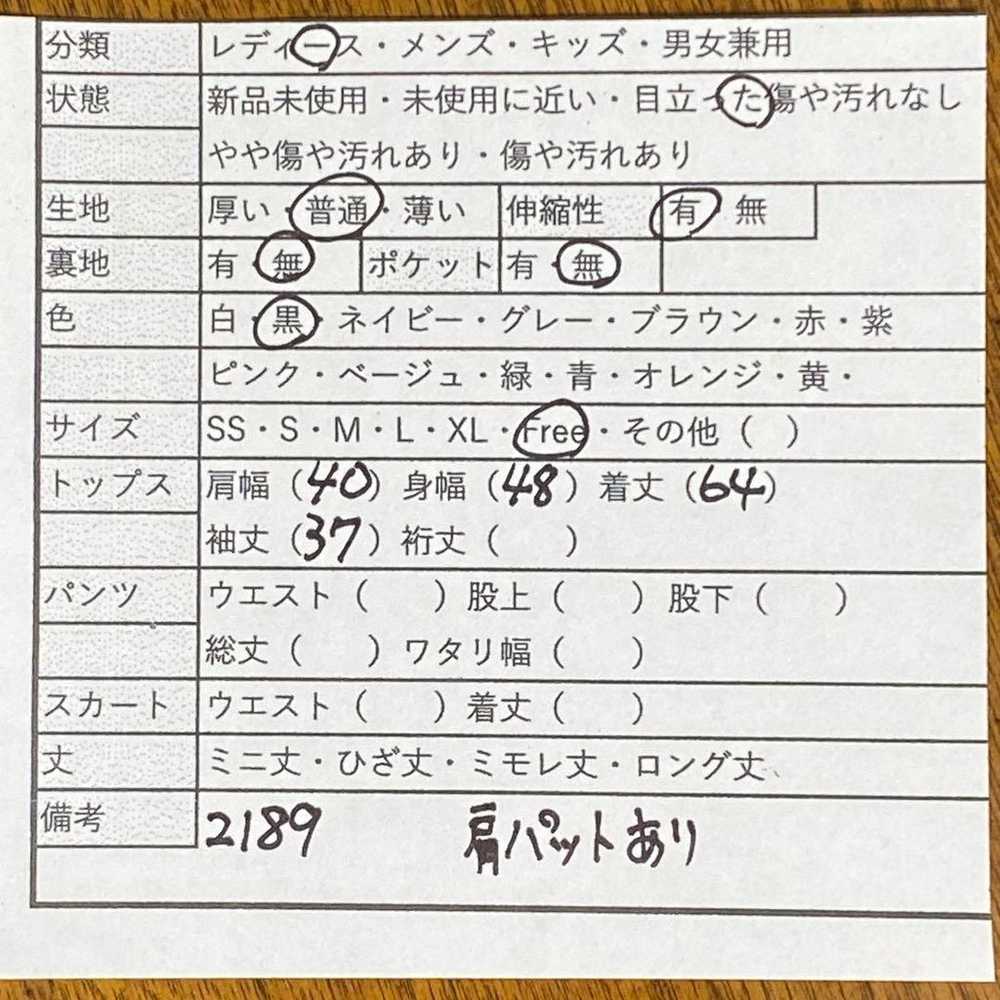 分類 レディース・メンズ・キッズ・男女兼用
状態 新品未使用・未使用に近い・目立った傷や汚れなし
やや傷や汚れあり・傷や汚れあり
生地 厚い・普通・薄い 伸縮性 有・無
裏地 有・無 ポケット 有・無
色 白・黒・ネイビー・グレー・ブラウン・赤・紫
ピンク・ベージュ・緑・青・オレンジ・黄・
サイズ SS・S・M・L・XL・Free・その他（　）
トップス 肩幅（40）身幅（48）着丈（64）
袖丈（37）裄丈（　　）
パンツ ウエスト（　　）股上（　　）股下（　　）
総丈（　　）ワタリ幅（　　）
スカート ウエスト（　　）着丈（　　）
丈 ミニ丈・ひざ丈・ミモレ丈・ロング丈、
備考 2189 肩パットあり